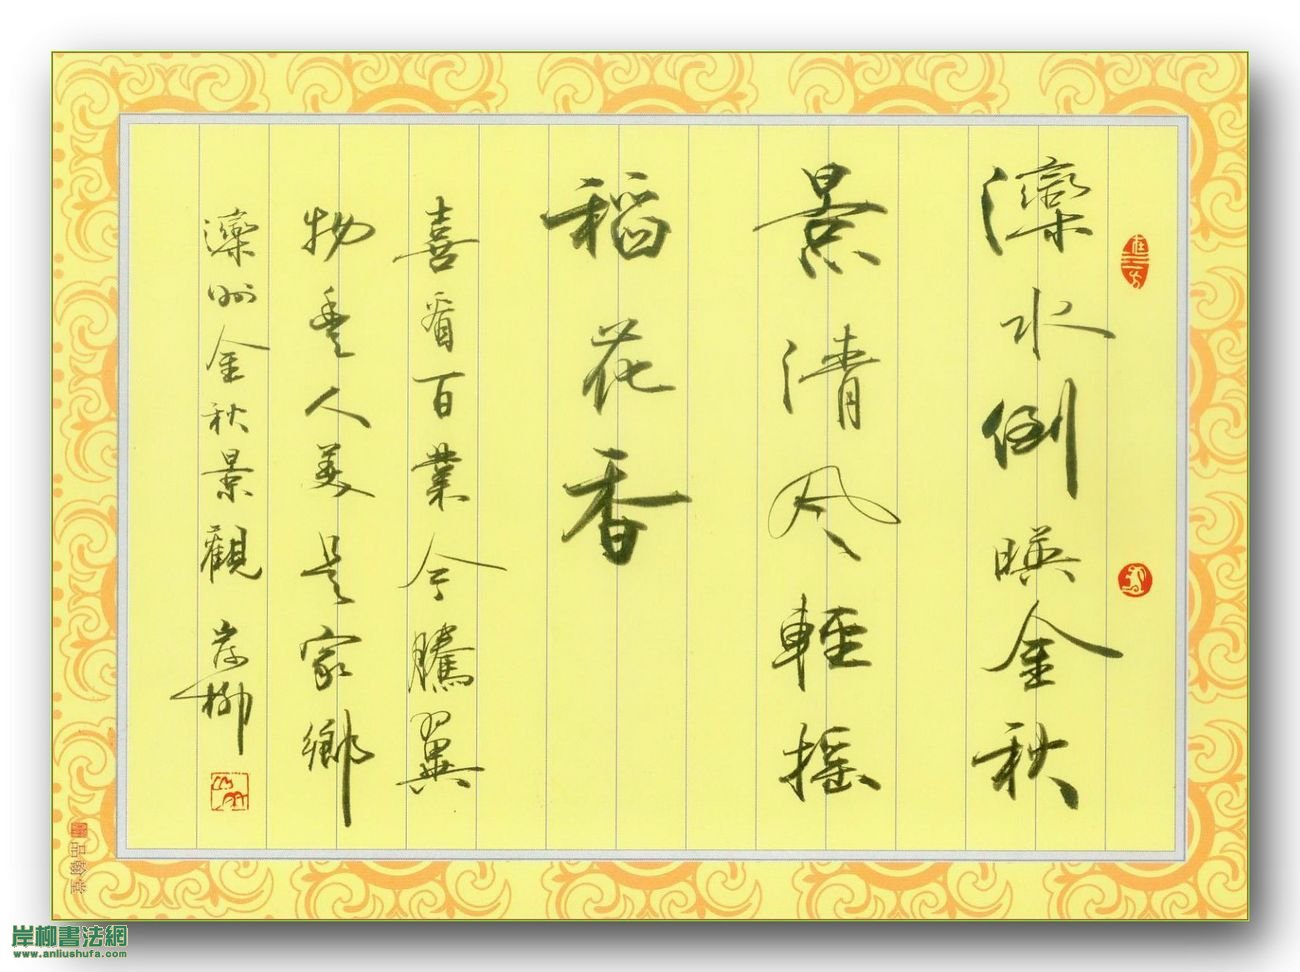 灤水倒暎金秋
景清风輕摇
稻花香
喜看百業今騰翼
物豊人美是家鄉
灤州金秋景觀 岸柳
岸柳書法網
www.anliushufa.com